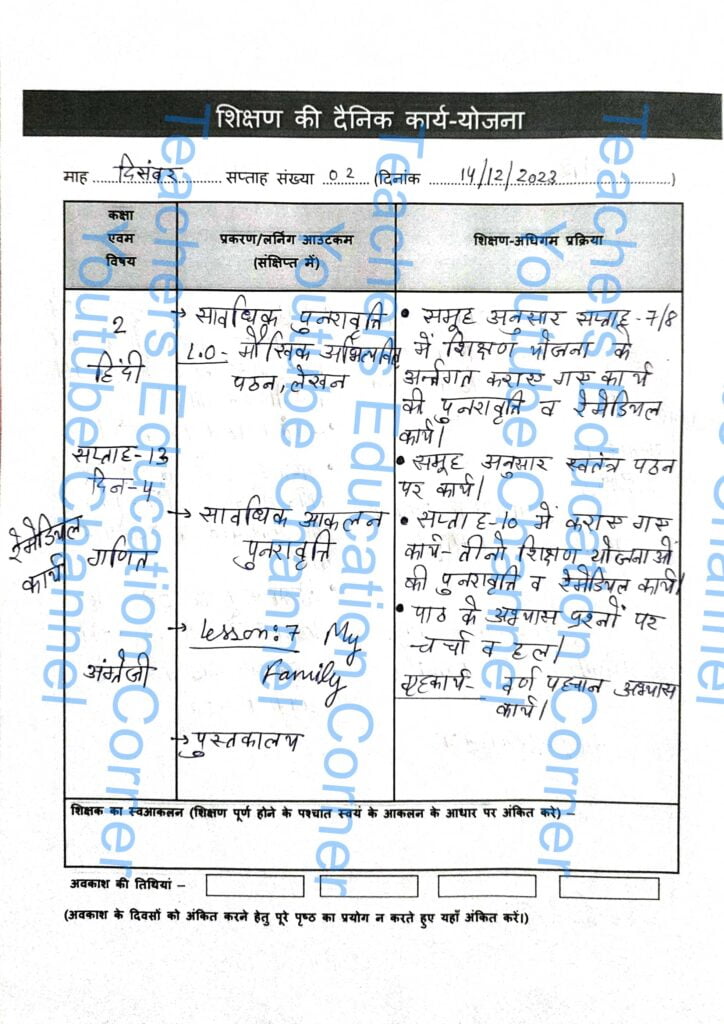 शिक्षण की दैनिक कार्य-योजना
माह दिसंबर सप्ताह संख्या 02 (दिनांक 14/12/2023)
कक्षा
एवम
विषय
प्रकरण/लर्निग आउटकम
(संक्षिप्त में)
शिक्षण-अधिगम प्रक्रिया
2
हिंदी
सप्ताह-13
दिन-4
रेमेडियल
कार्य
गणित
अंग्रेजी
→ सावधिक पुनरावृत्ति
L.O- मौखिक अभिव्यक्ति
पठन, लेखन
→ सावधिक आकलन
पुनरावृत्ति
→ Lesson: 7 My
Family
→ पुस्तकालय
• समूह अनुसार सप्ताह-7/8
में शिक्षण योजना के
अर्न्तगत कराए गए कार्य
की पुनरावृत्ति व रेमेडियल
कार्य।
• समूह अनुसार स्वतंत्र पठन
पर कार्य।
• सप्ताह-10 में कराए गए
कार्य- तीनो शिक्षण योजनाओं
की पुनरावृत्ति व रेमेडियल कार्य।
• पाठ के अभ्यास प्रश्नों पर
चर्चा व हल।
गृहकार्य- वर्ण पहचान अभ्यास
कार्य।
शिक्षक का स्वआकलन (शिक्षण पूर्ण होने के पश्चात स्वयं के आकलन के आधार पर अंकित करे) –
अवकाश की तिथियां –
(अवकाश के दिवसों को अंकित करने हेतु पूरे पृष्ठ का प्रयोग न करते हुए यहाँ अंकित करें।)
Teachers Education Corner
Youtube Channel
Teachers Education Corner
Youtube Channel
Teachers Education Corner
Youtube Channel